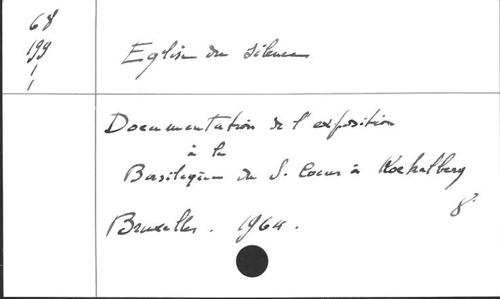 68
199
1
1
Eglise du silence
Documentation de l'exposition
à la
Basilique du S. Coeur à Koekelberg
8°
Bruxelles. 1964.